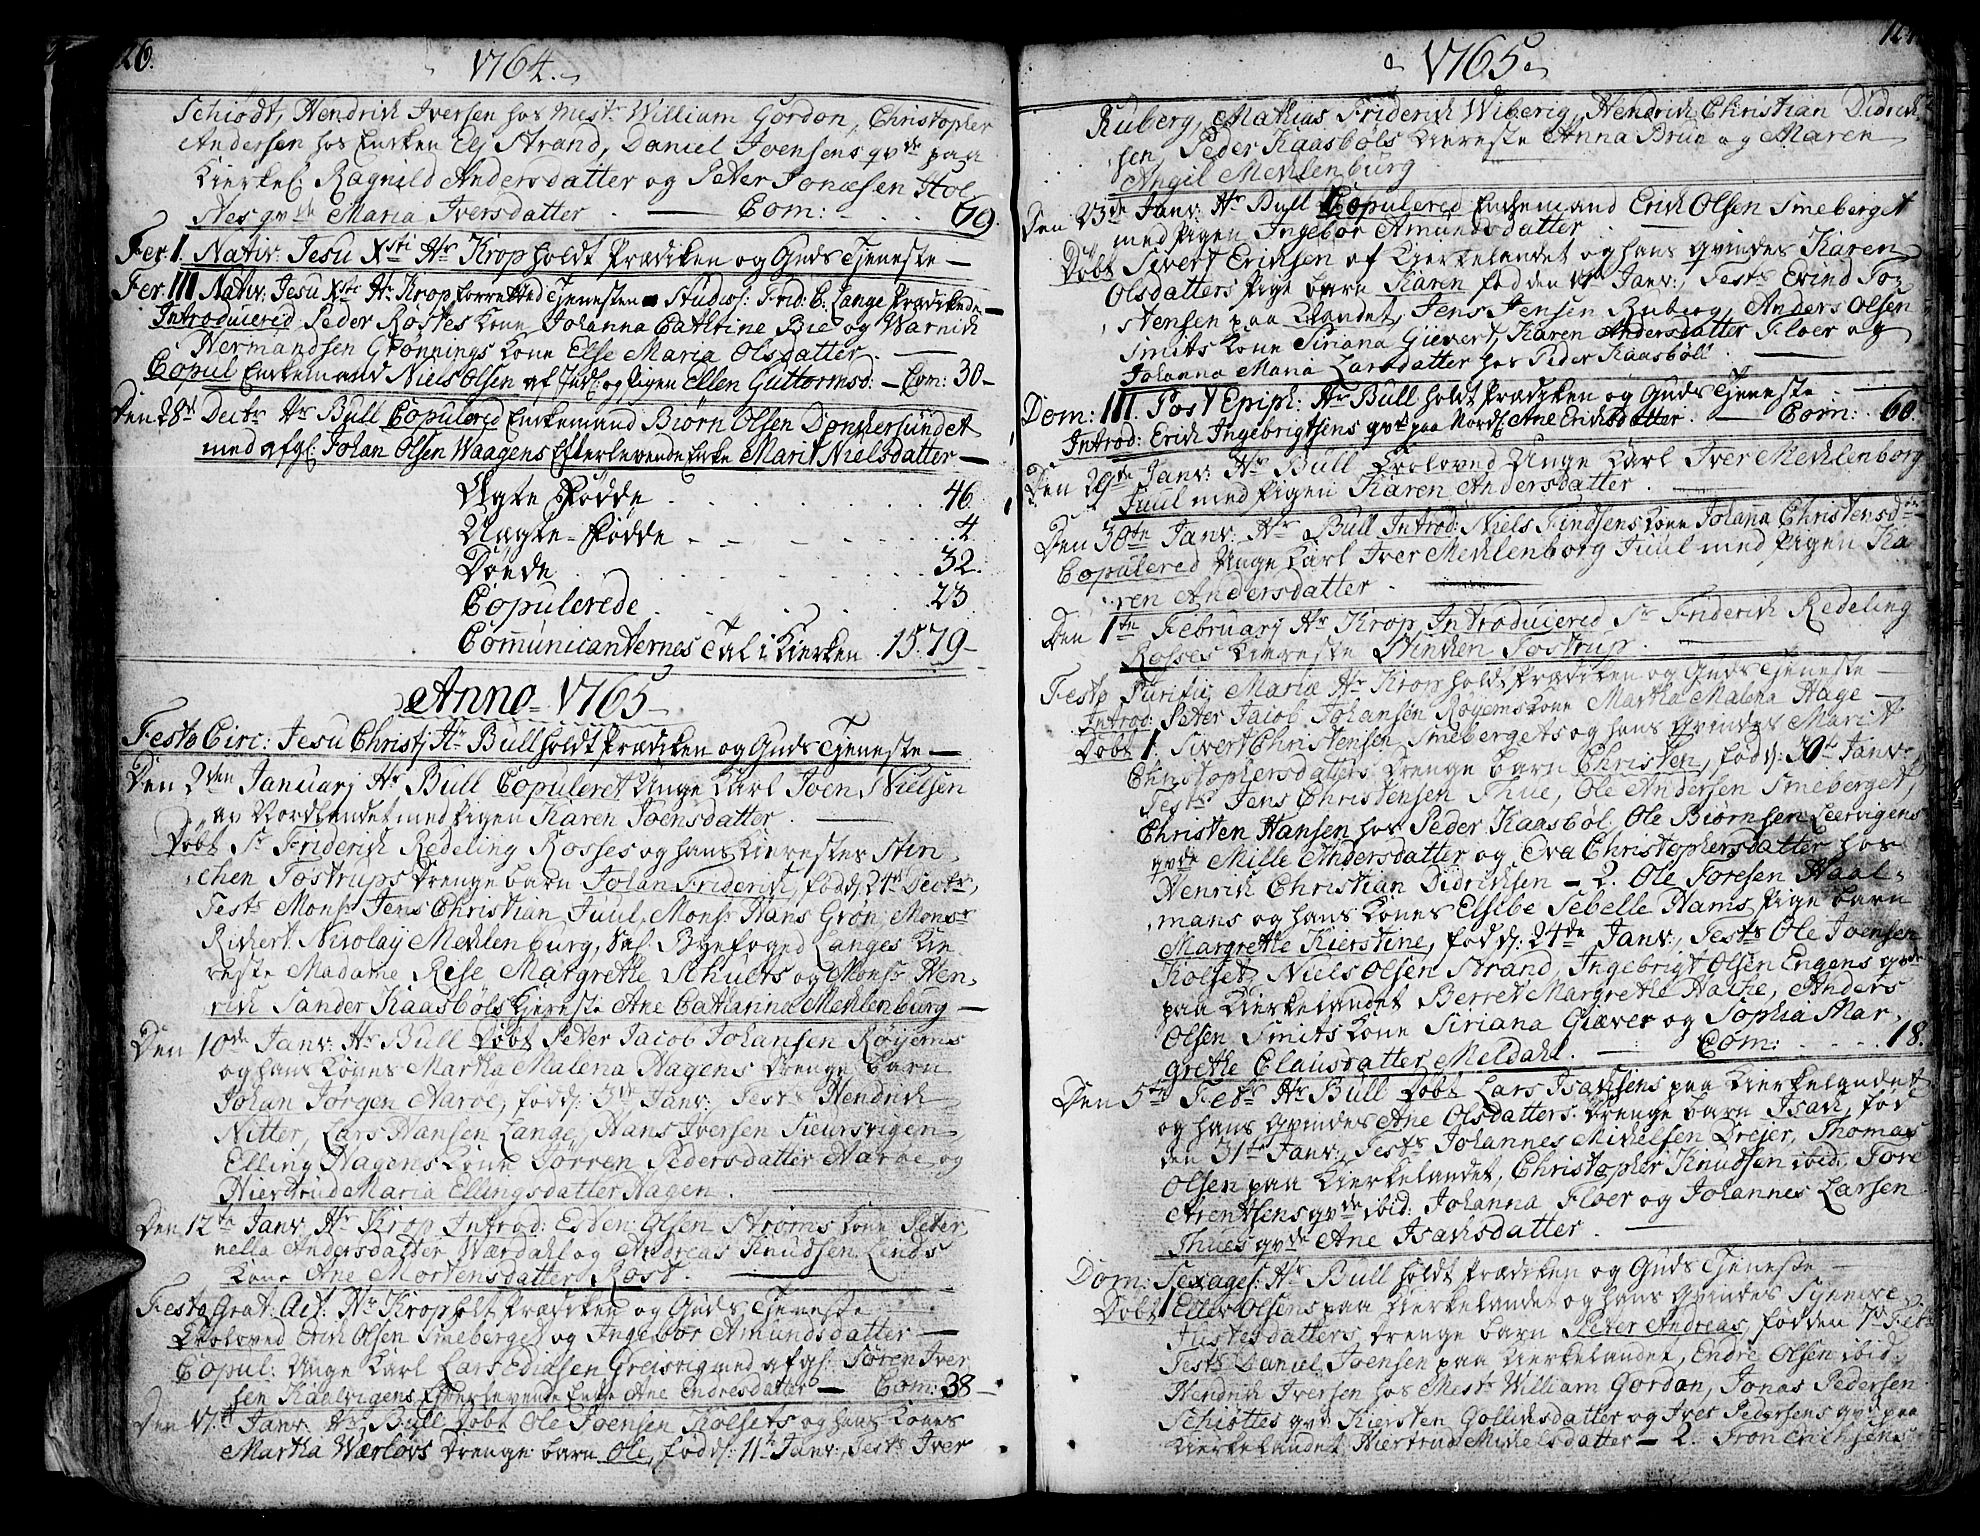 26.
1764.
Schiödt, Hendrich Iversen hos Mestr William Gordon, Christopher
Andersen hos Enken Els Strand, Daniel Joensens qvde paa
Kierkel Ragnild Andersdatter og Peter Jonæsen Hol
Nes qvde Maria Iversdatter. — Com: . . 69.
Fer: I. Nativ: Jesu Xsti Hr Krop holdt Prædiken og Guds Tjeneste —
Fer. III Nativ: Jesu Xsti Hr Krop forretted Tjenesten Studios: Frid: C. Lange Prædikede —
Introducered Peder Röstes Kone Johanna Cathrine Bie og Warnich
Hermandsen Grønnings Kone Else Maria Olsdatter. —
Copul Enkemand Niels Olsen af Indl: og Pigen Ellen Guttormsd: — Com: 30 —
Den 28de Decbr Hr Bull Copulered Enkemand Biørn Olsen Donkersundet
med afgl: Johan Olsen Waagens Efterlevende Enke Marit Nielsdatter —
Ægte Födde . . . . 46.
Uægte-Födde . . . . 4
Döede . . . . 32.
Copulerede . . . . 23
Communicanternes Tal i Kierken . 1579 —
Anno 1765
Festo Circ: Jesu Christj Hr Bull holdt Prædiken og Guds Tjeneste —
Den 2den Januarj Hr Bull Copuleret Unge Karl Joen Nielsen
av Nordlandet med Pigen Karen Joensdatter. —
Döbt Sr Friderich Redeling Rosses og hans Kierestes Stin,
chen Tostrups Drenge barn Johan Friderich, född: 24d Decbr,
Tests Monsr Jens Christian Juul, Monsr Hans Grön, Monsr
Richert Nicolay Mechlenburg, Sal. Byefoged Langes Kie,
reste Madame Rese Margrethe Schults og Monsr Hen,
rich Sander Kaasbøls Kiereste Ane Catharina Mechlenburg —
Den 10de Janv: Hr Bull Döbt Peter Jacob Johansen Røyems
og hans Kones Martha Malena Hagens Drenge barn
Johan Jörgen Naroe, född: 3de Janv: Tests Hendrich
Nitter, Lars Hansen Lange, Hans Iversen Sieursvigen
Elling Hagens Kone Torren Pedersdatter Naroe og
Hiertrud Maria Ellingsdatter Hagen. —
Den 12te Janv: Hr Krop Introd: Esben Olsen Ströms Kone Peter,
nella Andersdatter Wærdahl og Andreas Knudsen Linds
Kone Ane Mortensdatter Rost. —
Festo Grat: Act: Hr Krop holdt Prædiken og Guds Tjeneste
Troloved Erich Olsen Smeberget og Ingebor Amundsdatter —
Copul: Unge Karl Lars Ediasen Greisvig med afgl: Sören Iver
sen Kaalvigens Efterlevende Enke Ane Endresdatter — Com: 38 —
Den 17de Janv: Hr Bull Döbt Ole Joensen Kolsets og hans Kones
Martha Wærlovs Drenge barn Ole, född: 11te Janv: Tests Iver
1765.
Ruberg, Mathias Friderich Wiberg, Hendrich Christian Didrich
sen, Peder Kaasböls Kiereste Anna Brun og Maren
Angel Mechlenburg
Den 23de Janv: Hr Bull Copulered Enkemand Erich Olsen Smeberget
med Pigen Ingebor Amundsdatter. —
Döbt Sivert Erichsen af Kierkelandet og hans qvindes Karen
Olsdatters Pige barn Karen föd den Janv:, Tests Erind To,
stensen paa Landet, Jens Jensen Ruberg, Anders Olsen
Smits Kone Siriana Gievert, Karen Andersdatter Floer og
Johanna Maria Larsdatter hos Peder Kaasböll. —
Dom: III. Post Epiph: Hr Bull holdt Prædiken og Guds Tjeneste —
Introd: Erich Ingebrigtsens qvde paa Nordl: Ane Erichsdatter. — Com: 60.
Den 29de Janv: Hr Bull Troloved Unge Karl Iver Mechlenborg
Juul med Pigen Karen Andersdatter. —
Den 30te Janv: Hr Bull Introd: Niels Findsens Kone Johanna Christensd
Copulered Unge Karl Iver Mechlenborg Juul med Pigen Ka
ren Andersdatter. —
Den 1te Februarj Hr Krop Introducered Sr Friderich Redeling
Rosses Kiereste Stinchen Tostrup. —
Festo Purific: Mariæ Hr Krop holdt Prædiken og Guds Tjeneste —
Introd: Peter Jacob Johansen Røyems Kone Martha Malena Hage —
Döbt 1. Sivert Christensen Smebergets og hans Qvindes Marit
Christophersdatters Drenge barn Christen, född: 30te Janv:
Tests Jens Christensen Thue, Ole Andersen Smeberget,
Christen Hansen hos Peder Kaasböl, Ole Biørnsen Leervigens
qvde Mille Andersdatter og Eva Christophersdatter hos
Henrich Christian Didrichsen — 2. Ole Toresen Haal,
mans og hans Kones Elsebe Sebelle Hams Pige barn
Margrethe Kierstine, född: 24de Janv:, Tests Ole Joensen
Kolset, Niels Olsen Strand, Ingebrigt Olsen Engens qvde
paa Kierkelandet Berret Margrethe Hatke, Anders
Olsen Smits Kone Siriana Giæver og Sophia Mar,
grethe Clausdatter Meldahl. — Com: . . . 18.
Den 5te Febr: Hr Bull Döbt Lars Isachsens paa Kierkelandet
og hans qvindes Ane Olsdatters Drenge barn Isach, föd
den 31te Janv:, Tests Johannes Michelsen Drejer, Thomas
Olsen paa Kierkelandet, Christopher Knudsen ibid:, Tore
Arentsens qvde ibid: Johanna Floer og Johannes Larsen
Thues qvde Ane Isachsdatter. —
Dom: Sexages: Hr Bull holdt Prædiken og Guds Tjeneste —
Döbt 1 Eller Olsens paa Kierkelandet og hans Qvindes Synneve
Justesdatters Drenge barn Peter Andreas, föd den 7de Feb:
Tests Daniel Joensen paa Kierkelandet, Endre Olsen ibid:
Hendrich Iversen hos Mestr William Gordon, Jonas Pedersen
Schiöttes qvde Kiersten Gollichsdatter og Iver Pedersens qvde paa
Kierkelandet Hiertrud Michelsdatter — 2. Tron Erichsens